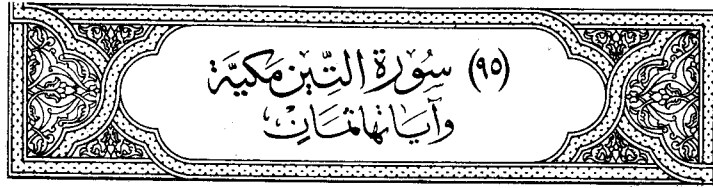 (٩٥) سُورَة التِّين مَكِيَّة
وَآيَانهَا ثمَانِ